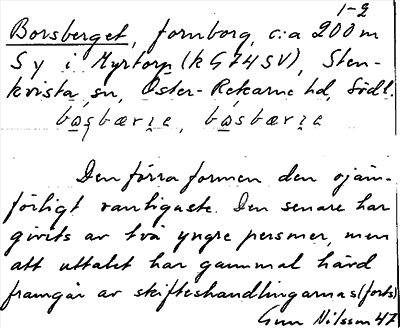 1-2
Borsberget, fornborg, c:a 200 m
Sy i Myrtorp (k G74 SV), Sten-
kvista sn, Öster-Rekarne hd, Södl.
bo̱ṣbærɪ̱e, bo̱sbærɪ̱e
Den förra formen den ojäm-
förligt vanligaste. Den senare har
givits av två yngre personer, men
att uttalet har gammal hävd
framgår av skifteshandlingarna (forts)
Gun Nilsson 47